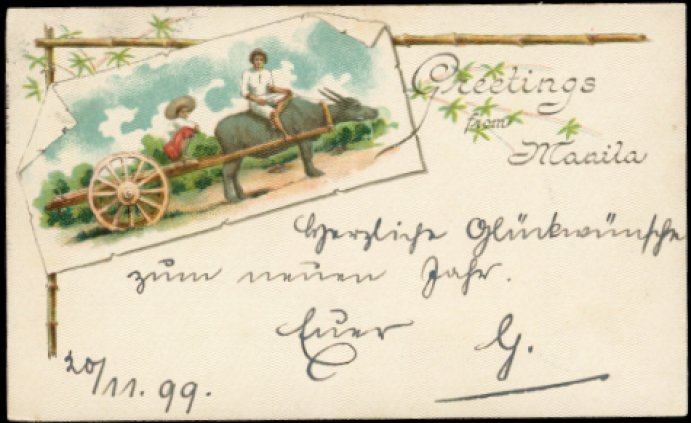 Greetings
from
Manila
Herzliche Glückwünsche
zum neuen Jahr.
Euer G.
20/11. 99.